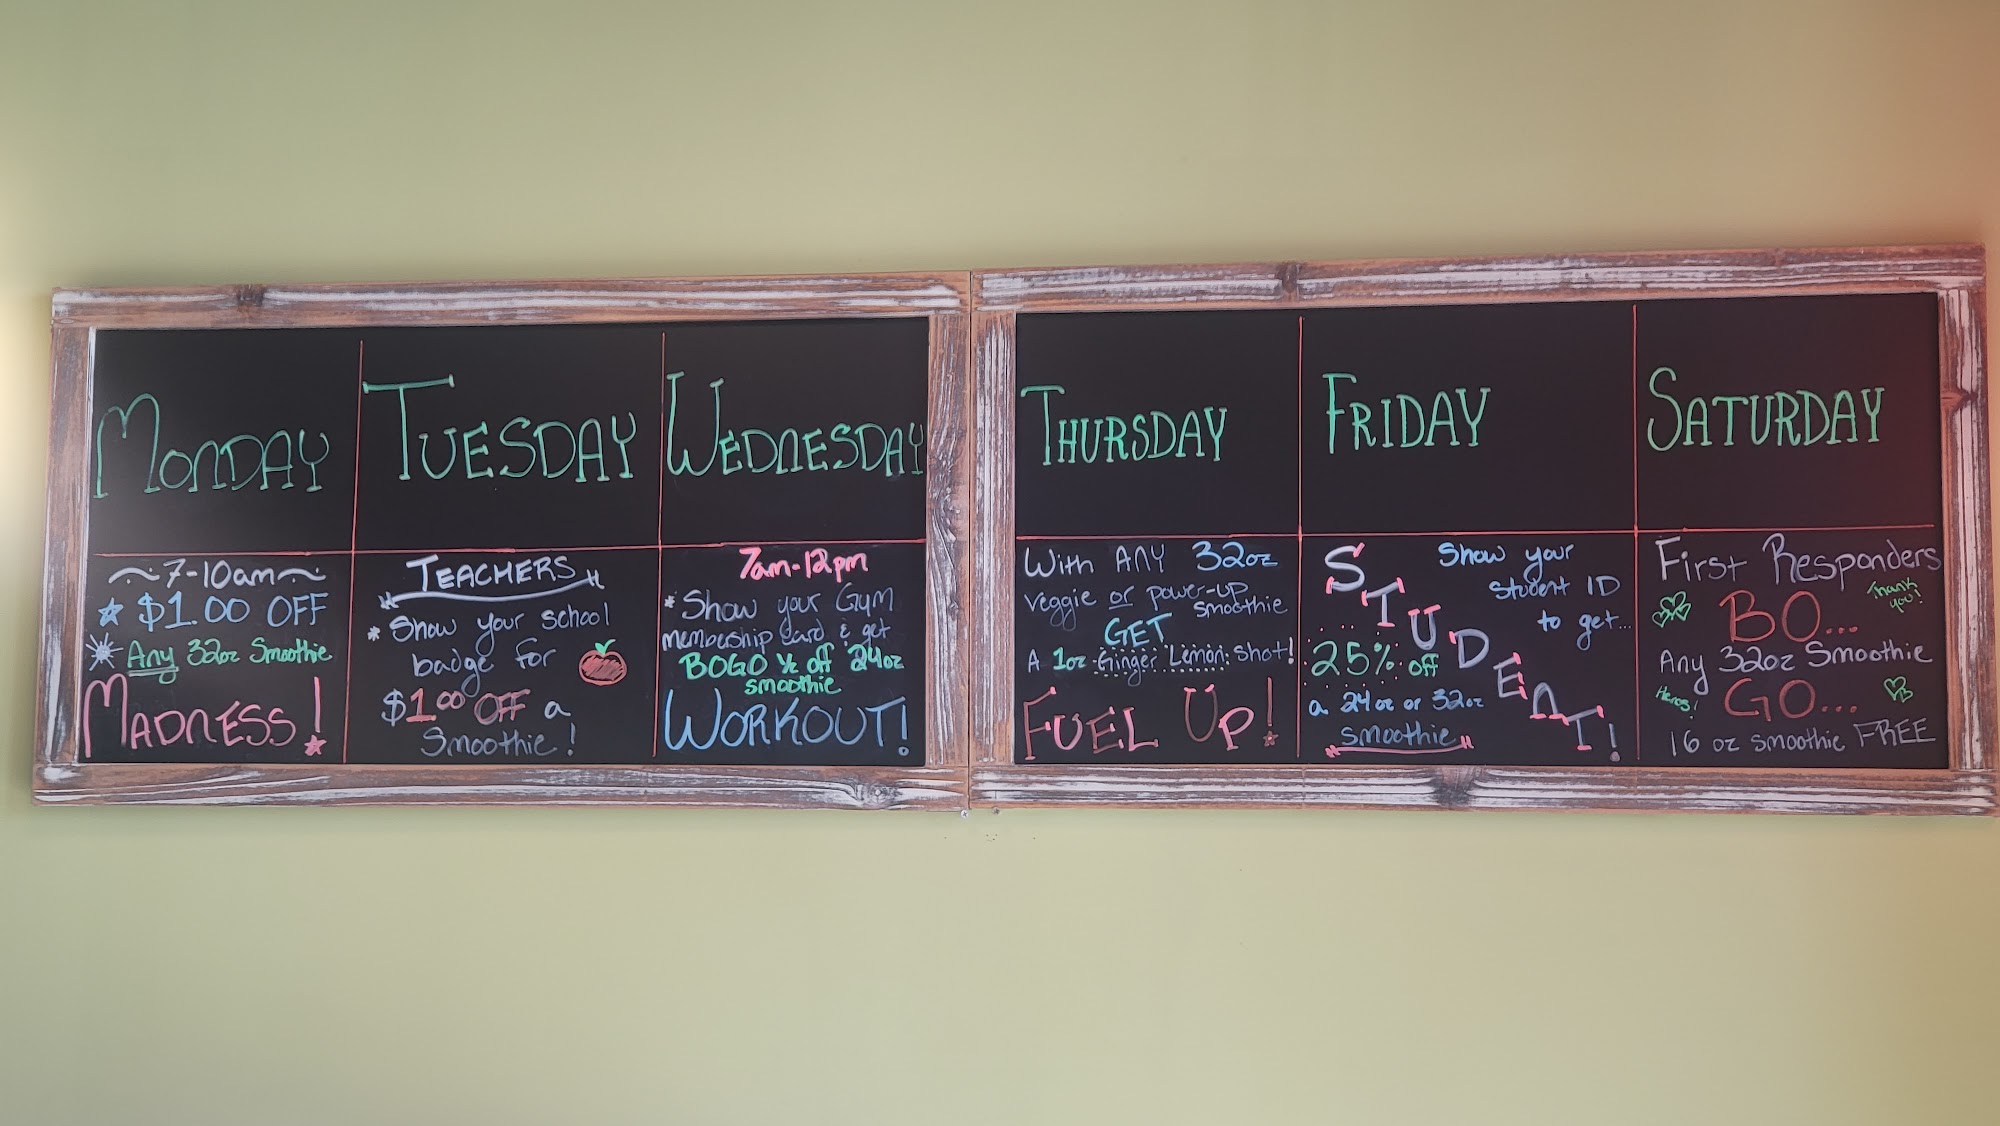 Monday
7-10am
$1.00 OFF
Any 32oz Smoothie
MADNESS!
TUESDAY
TEACHERS
* Show your school
badge for
$1.00 OFF a
Smoothie!
WEDNESDAY
7am-12pm
* Show your Gym
membership card & get
BOGO ½ off 24oz
smoothie
WORKOUT!
THURSDAY
With ANY 32oz
veggie or power-up
smoothie
GET
A 1oz Ginger Lemon shot!
FUEL UP!
FRIDAY
STUDENT!
Show your
student ID
to get...
25% off
a 24oz or 32oz
smoothie
SATURDAY
First Responders
Thank
you!
BO...
Any 32oz Smoothie
Heros!
GO...
16 oz smoothie FREE